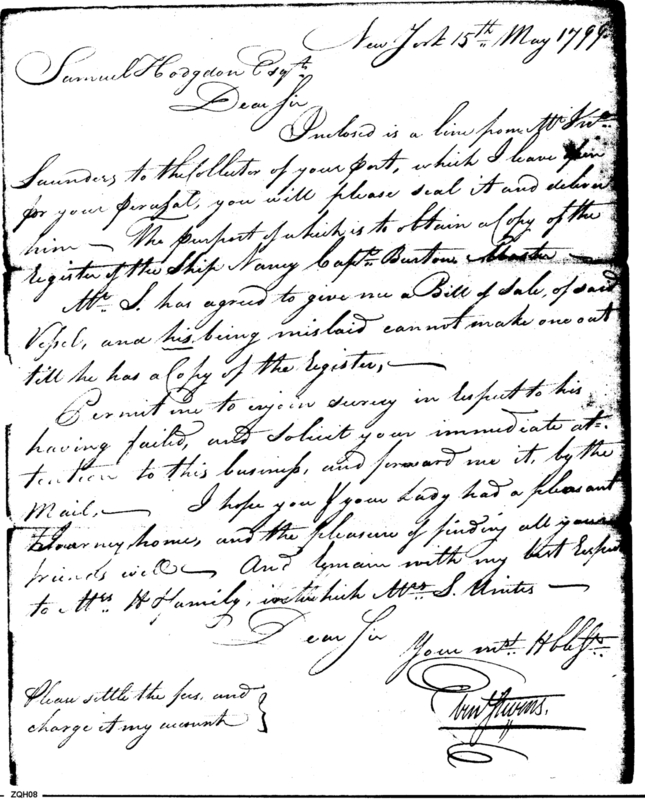 New York 15th May 1799
Samuel Hodgdon Esqr
Dear Sir
Inclosed is a line from Mr
Saunders, to the Collector of your Port, which I leave open
for your perusal, you will please seal it and deliver
him — The purport of which is to obtain a Copy of the
Register of the Ship Nancy Captn Burton Master —
Mr. S. has agreed to give me a Bill of Sale, of said
Vessel, and his being mislaid cannot make one out
till he has a Copy of the Register, —
Permit me to enjoin secrecy in respect to his
having failed, and solicit your immediate at=
tention to this business, and forward me it, by the
Mail, — I hope you & your Lady had a pleasant
Journey home, and the pleasure of finding all your
friends well — And remain with my best Respects
to Mrs H & Family, in which Mrs S. Unites —
Dear Sir
Your mst. Hble Sr.
Stevens.
Please settle the fees, and
charge it my account
ZQH08